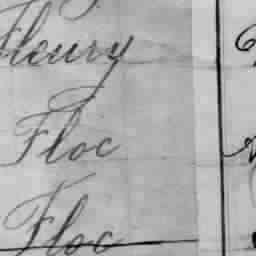 Fleury
Floc
Floc